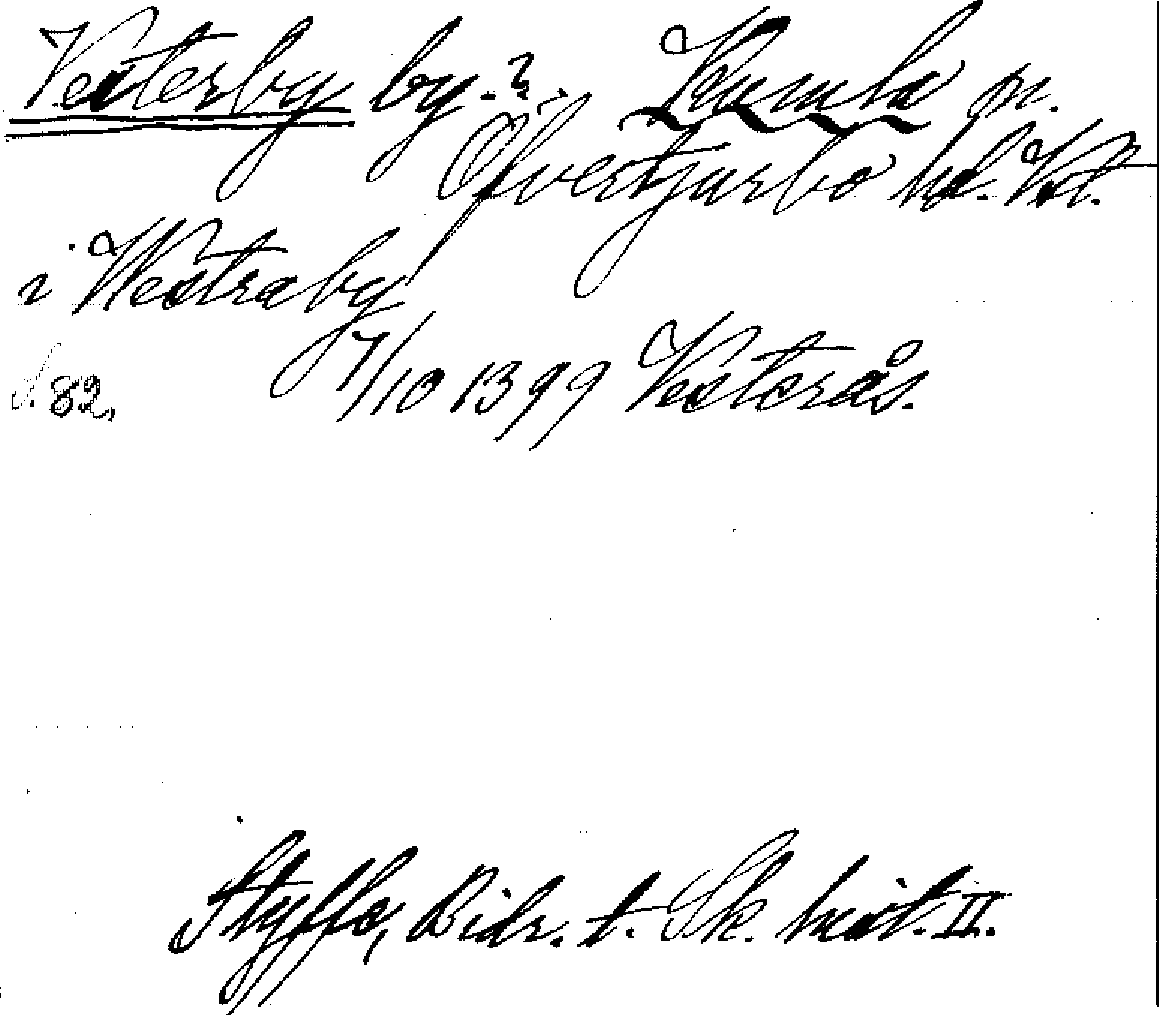 Vesterby by.? Kumla sn.
Öfvertjurbo hd. Vstm.
i Westraby
s. 82. 7/10 1399 Vesterås.
Styffe, Bidr. t. Sk. hist. II.